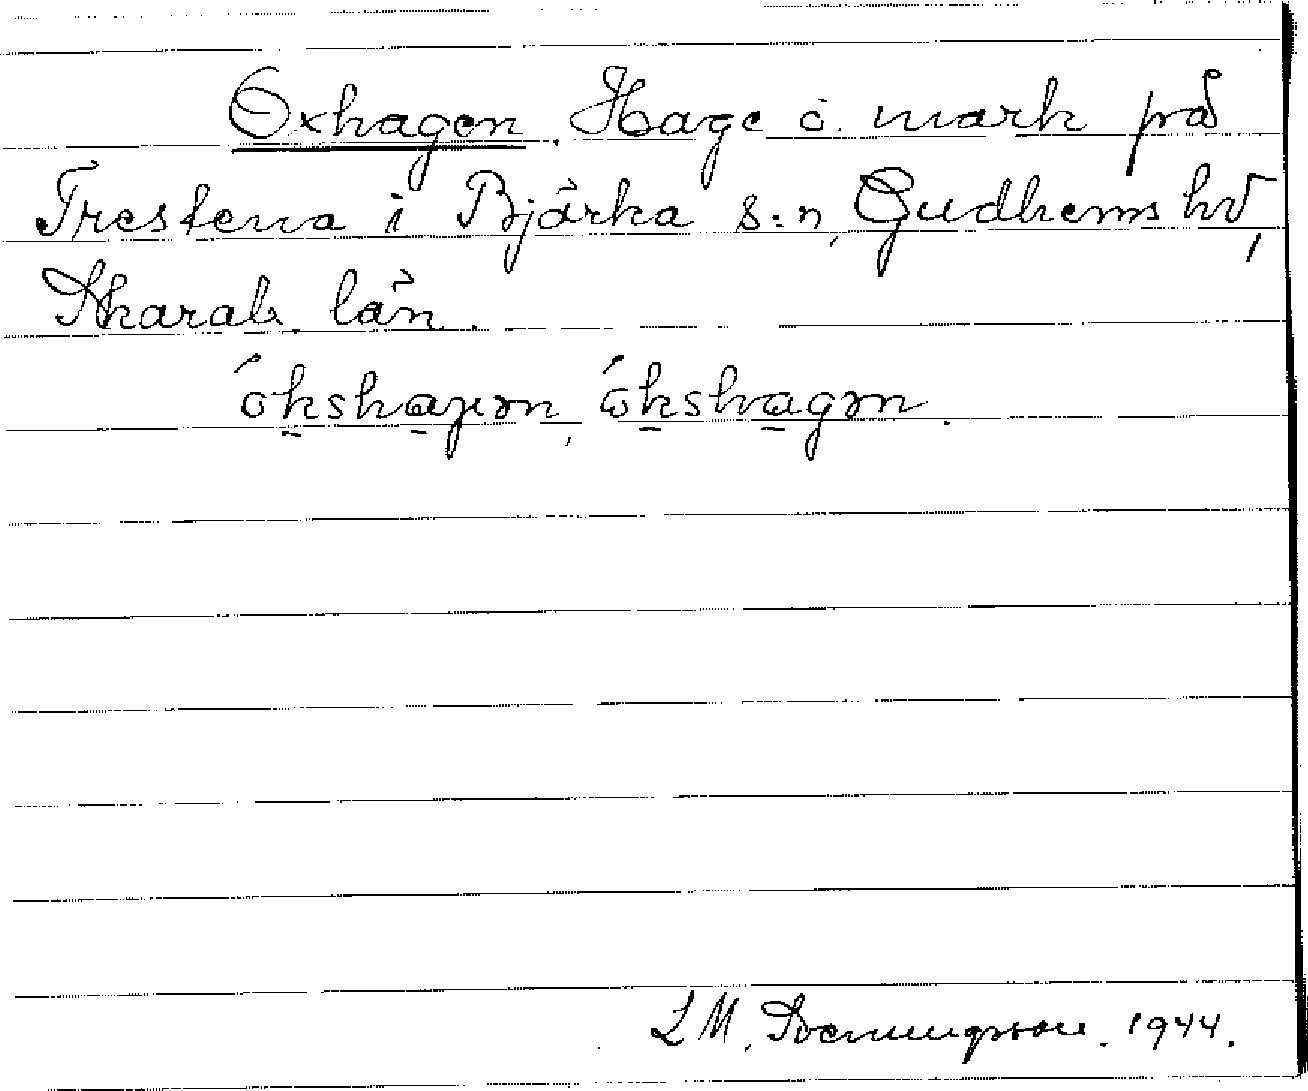 Oxhagen. Hage o. mark på
Trestena i Bjärka s:n, Gudhems hd,
Skarab. län.
ókshaɡən, ókshagən.
L M. Svenungsson. 1944.